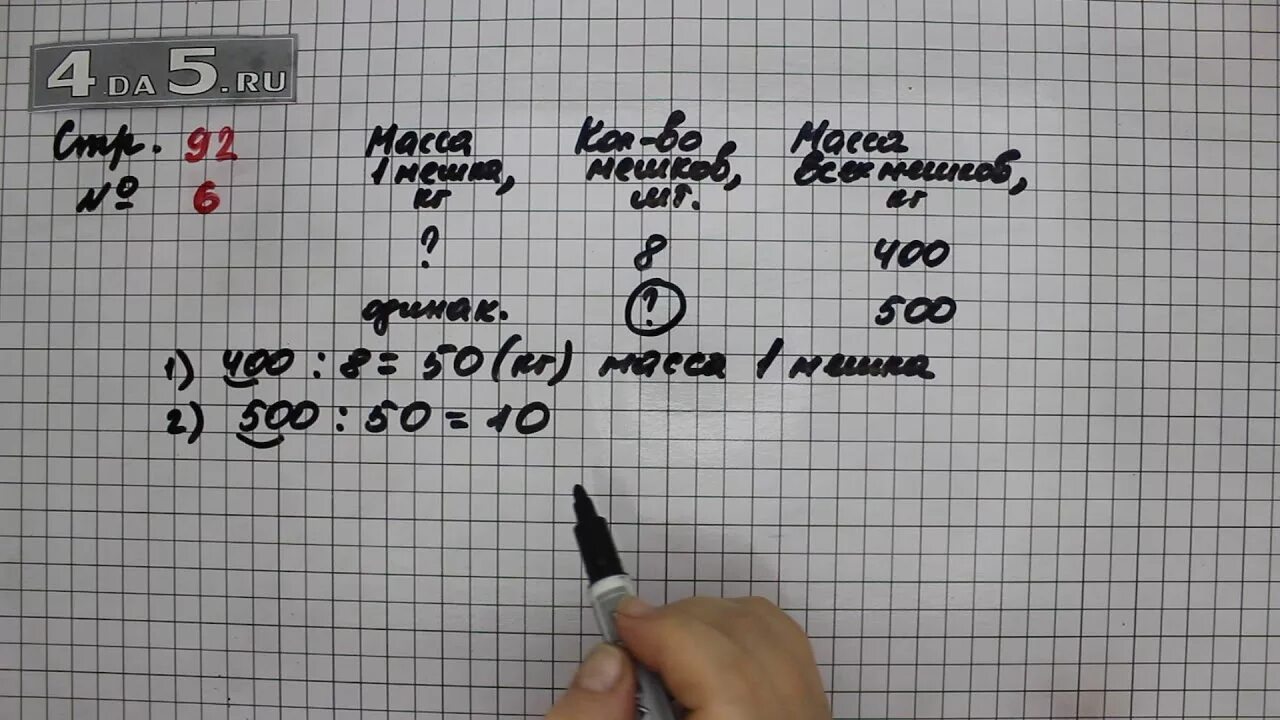 4DA5.RU
Стр. 92
№ 6
Масса 1 мешка, кг
Кол-во мешков, шт.
Масса всех мешков, кг
? 8 400
одинак. ? 500
1) 400 : 8 = 50 (кг) масса 1 мешка
2) 500 : 50 = 10